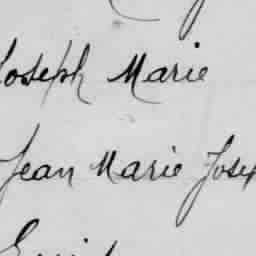 Joseph Marie
Jean Marie Josep